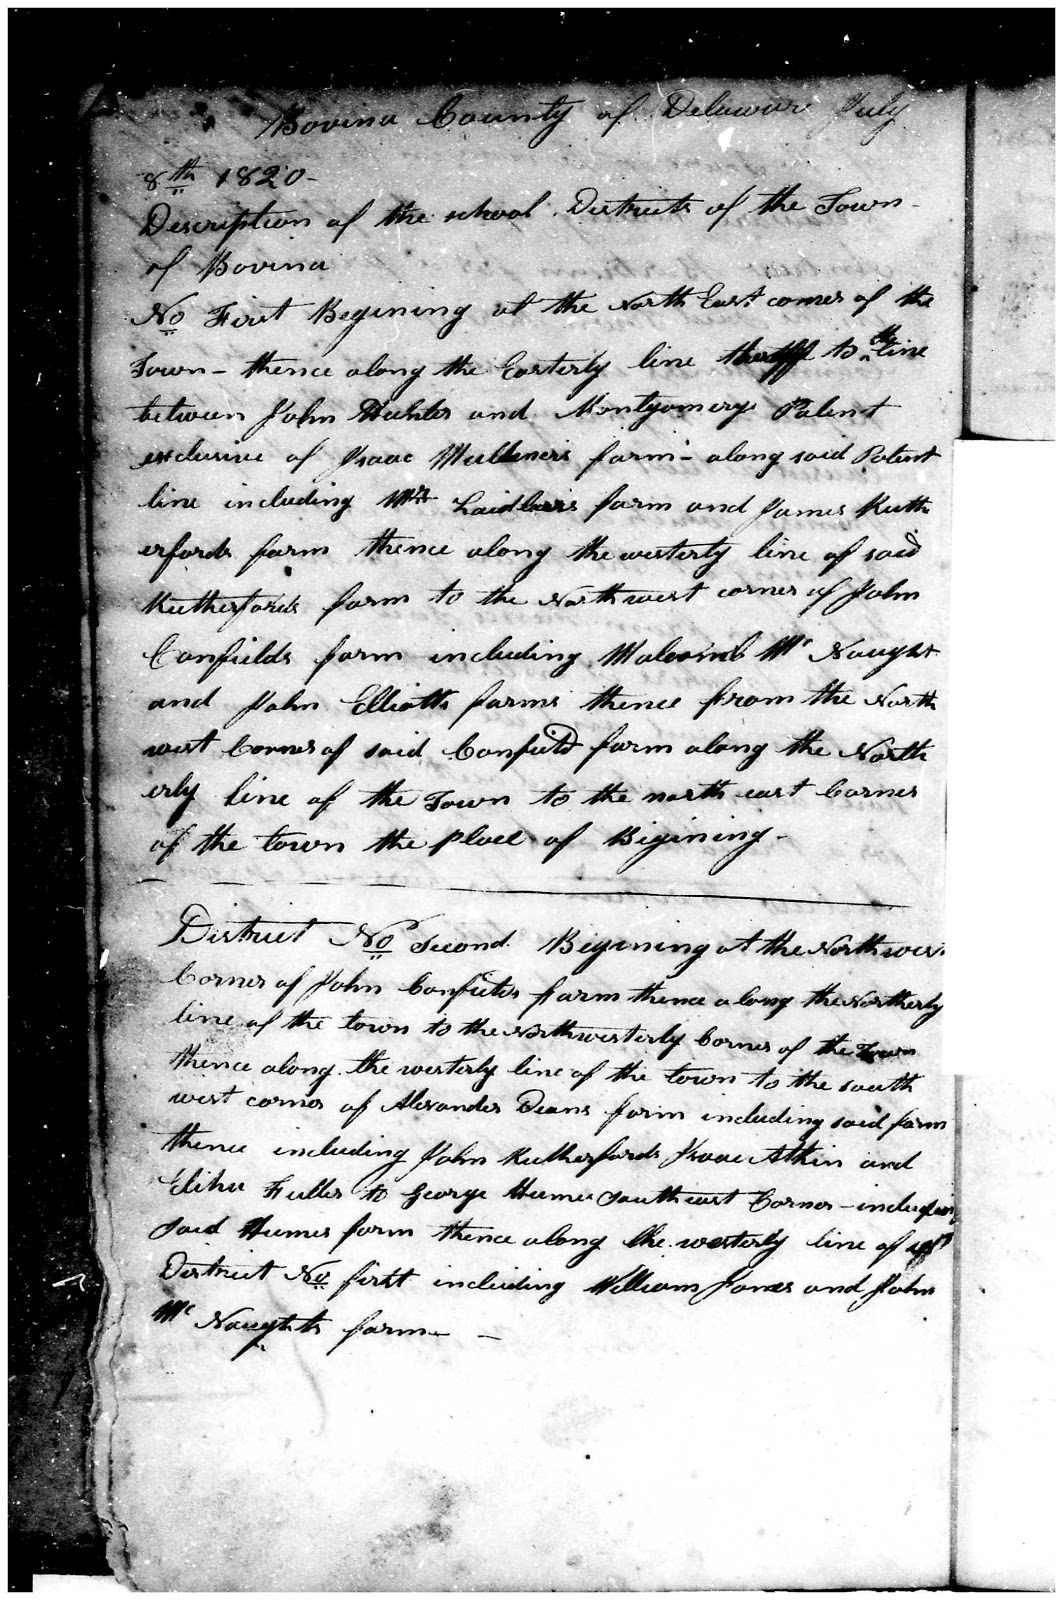 Bovina County of Delaware July
8th 1820-
Description of the school Districts of the Town-
of Bovina
No First Begining at the North East corner of the
Town - thence along the Easterly line thereof to the line
between John Hunter and Montgomery Patent
exclusive of Isaac farm - along said Patent
line including farm and James Ruth
erfords farm thence along the westerly line of said
Rutherfords farm to the North west corner of John
Canfields farm including Malcomb Mc Naught
and John Elliotts farms thence from the North
west Corner of said Canfield farm along the North
erly line of the Town to the north east Corner
of the town the place of Bigining-
District No Second Begining at the North west
Corner of John Canfields farm thence along the Northerly
line of the town to the Northwesterly Corner of the Town
thence along the westerly line of the town to the south
west corner of Alexander Deans farm including said farm
thence including John Rutherfords Isaac Atkin and
Elihu Fuller to George Humes south east Corner - including
said Humes farm thence along the westerly line of
District No first including William Jones and John
Mc Naughts farm - -